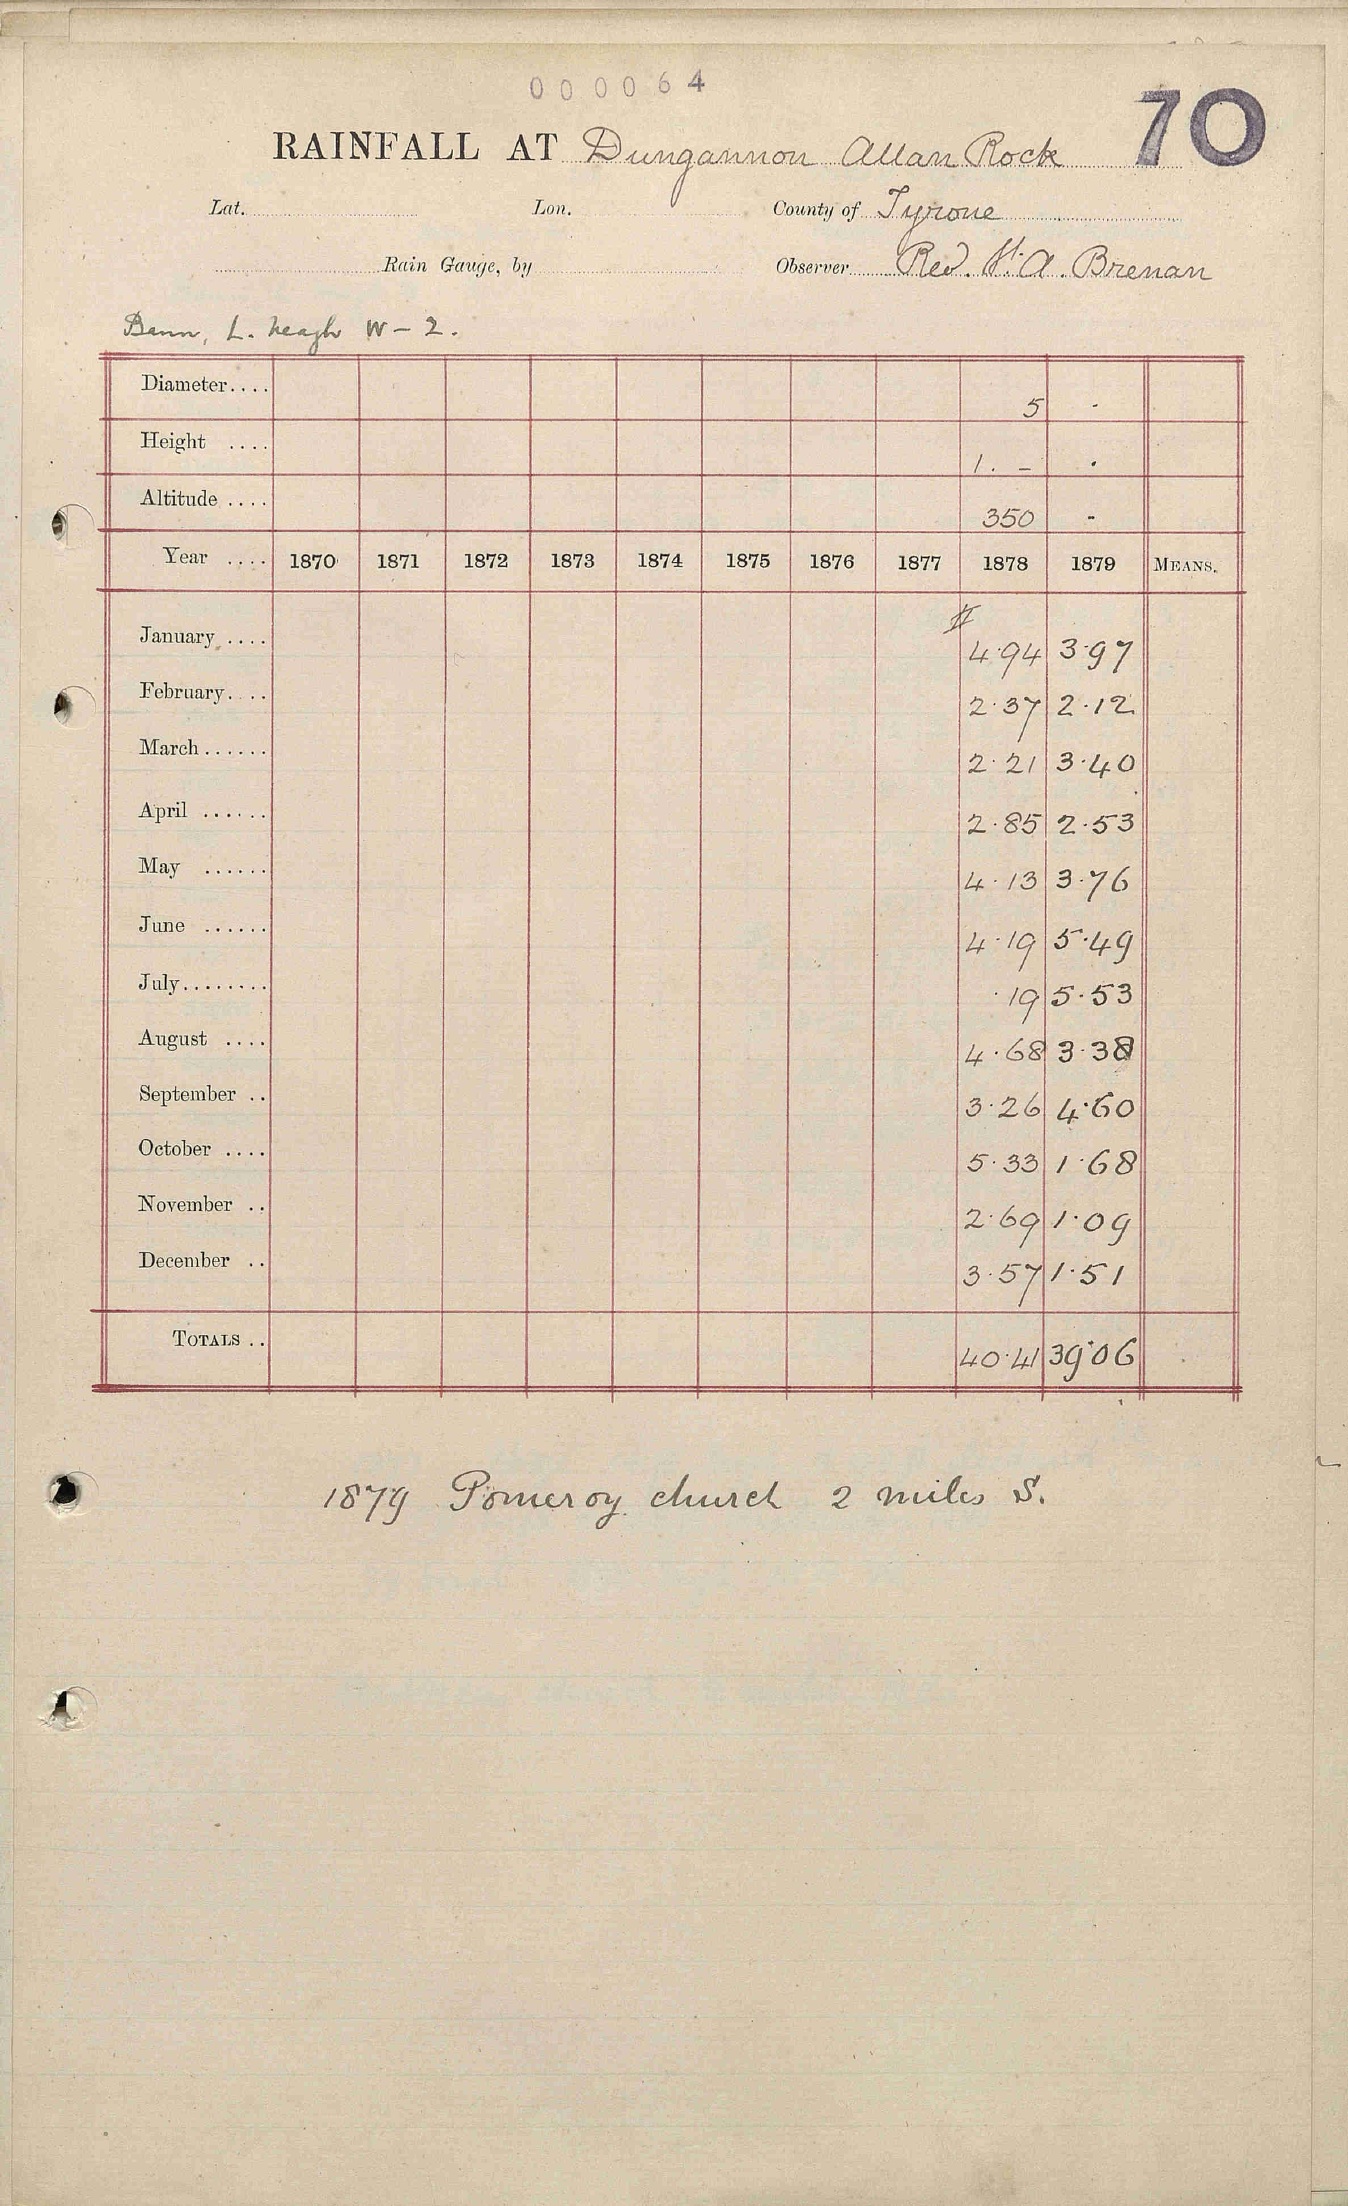 000064
70
RAINFALL AT Dungannon Allan Rock
Lat. Lon. County of Tyrone
Rain Gauge, by Observer Rev. A. Brenan
Bann, L. Neagh W - 2.
Diameter.... 5 -
Height .... 1. - .
Altitude .... 350 -
Year .... 1870 1871 1872 1873 1874 1875 1876 1877 1878 1879 MEANS.
January .... 4.94 3.97
February.... 2.37 2.12
March...... 2.21 3.40
April ...... 2.85 2.53
May ...... 4.13 3.76
June ...... 4.19 5.49
July........ .19 5.53
August .... 4.68 3.38
September .. 3.26 4.60
October .... 5.33 1.68
November .. 2.69 1.09
December .. 3.57 1.51
TOTALS .. 40.41 39.06
1879 Pomeroy church 2 miles S.